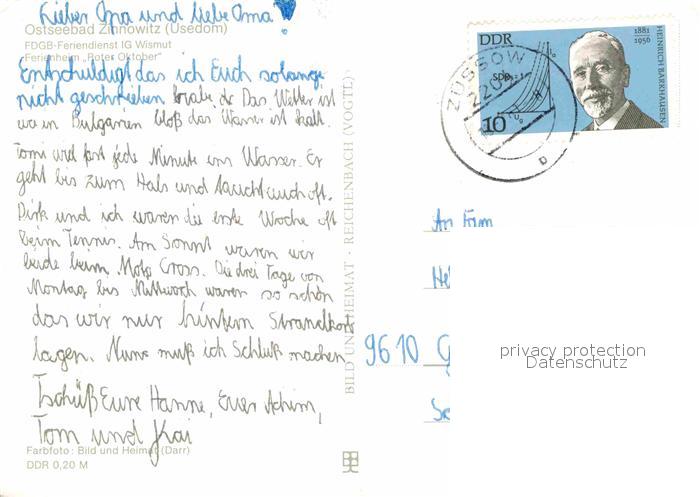 Lieber Opa und liebe Oma!
Ostseebad Zinnowitz (Usedom)
FDGB-Feriendienst IG Wismut
Ferienheim „Roter Oktober"
Entschuldigt das ich Euch solange
nicht geschrieben habe. Das Wetter ist
wie in Bulgarien bloß das Wasser ist kalt.
Tom will fast jede Minute ins Wasser. Er
geht bis zum Hals und taucht auch oft.
Dirk und ich waren die erste Woche oft
beim Tennis. Am Sonnt waren wir
beide beim Moto Cross. Die drei Tage von
Montag bis Mittwoch waren so schön
das wir nur hinterm Strandkorb
lagen. Nun muß ich Schluß machen
Tschüß Eure Hanne, Euer Achim,
Tom und Kai
Farbfoto: Bild und Heimat (Darr)
DDR 0,20 M
BILD UND HEIMAT · REICHENBACH (VOGTL)
DDR
1881
1956
HEINRICH BARKHAUSEN
10
ZÜSSOW
An Fam
9610 G
privacy protection
Datenschutz